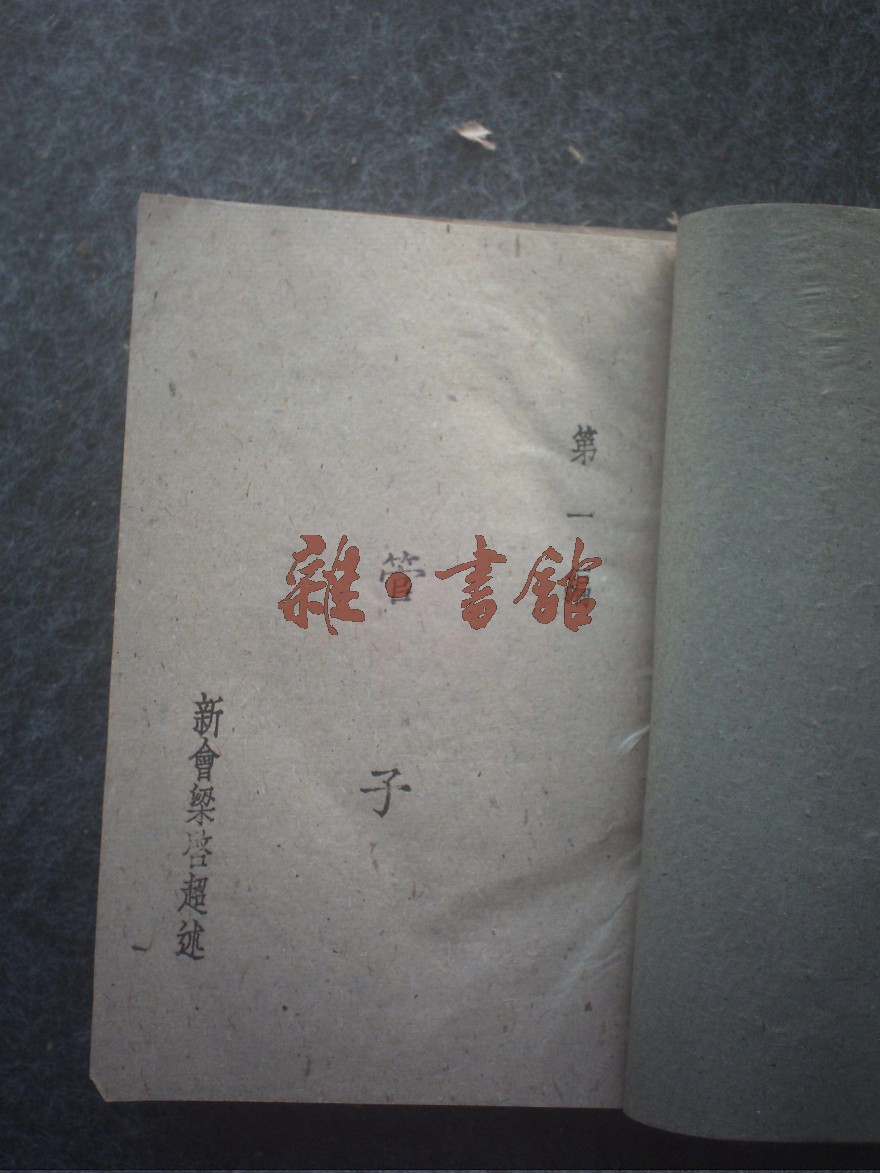 第一
管子
新會梁啓超述
雜·書館